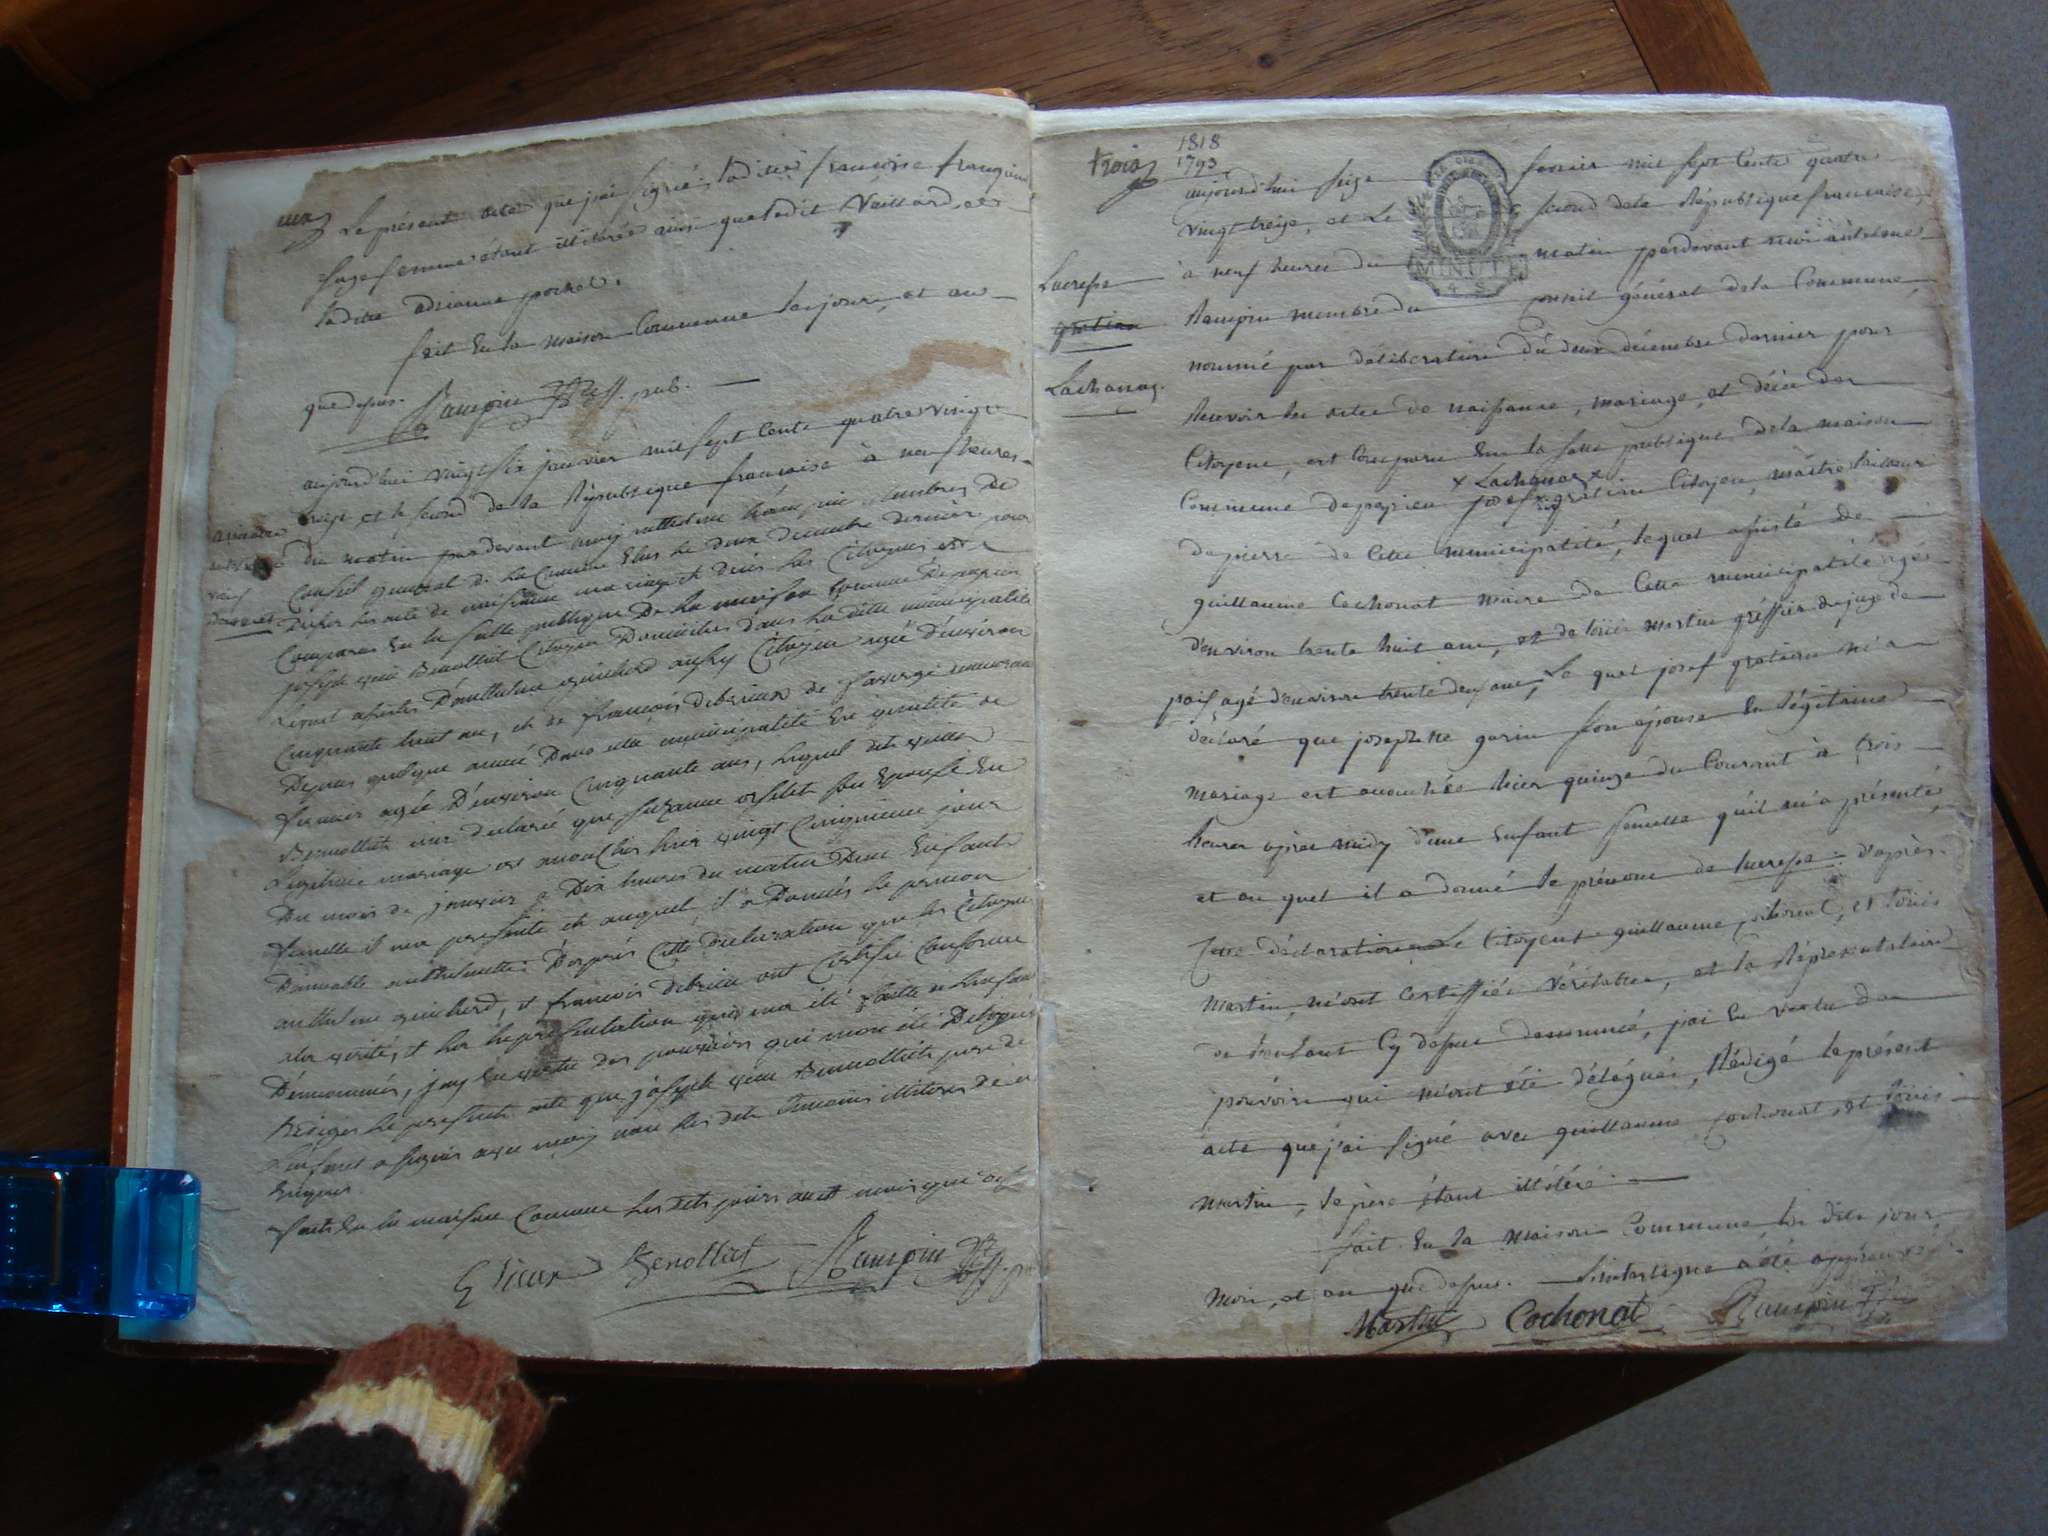 Le présent acte que j'ai signé, la dite françoise françoin
sage femme étant illiterée ainsi que ledit Vaillard, et
la dite adrianne pochet.
fait en la maison Commune les jour, et an
que dessus. Rampin off. pub.
aujourd'hui vingt six janvier mil sept cents quatre vingt
treize et le second de la République françoise à neuf heures
du matin par devant moy anthelme Rampin membre du
Conseil general de la Commune élus le deux decembre dernier pour
dresser les acte de naissance mariage et décès des Citoyens est
Comparu en la salle publique De la maison Commune De papieu
joseph vieux Benottiet Citoyen Domicilier dans la ditte municipalité
lequel assistés D'anthelme guicherd aussy Citoyen agée d'environ
Cinquante huit an, et de françois debrieux de faverge demeurant
Depuis quelque année Dans cette municipalité en qualité de
agée D'environ Cinquante ans, lequel dit vieux
Benottiet m'a declaré que suzanne son Epouse en
Legitime mariage est accouchée hier vingt Cinquieme jour
Du mois de janvier à Dix heures du matin D'une Enfant
femelle il m'a présenté et auquel il a Donnés le prenom
anthelmette D'après Cette declaration que les Citoyens
anthelme guicherd, et françois debrieu ont Certifié Conforme
a la verité, et la representation qui m'a été faite de l'enfant
Dénommés, j'ay en vertu des pouvoirs qui m'on été Delegués
Rédigés le present acte que joseph vieux Benottiet pere de
L'enfant a signés avec moy non les dits temoins illiteres de ce
Enquis.
fait en la maison Comune les dits jours an et mois que dessus
vieux Benottiet Rampin off. p
trois
1818
1793
aujourd'hui seize fevrier mil sept Cents quatre
vingt treize, et le second de la République francaise,
MINUTE
4 S
à neuf heures du matin pardevant moi antelme
Lucresse
Rampin membre du conseil général de la Commune
gratian
nommé par délibération du deux décembre dernier pour
Lachanas.
Recevoir les actes de naissance, mariage, et décès des
Citoyens, est Comparu En la salle publique de la maison
x Lachanas x
Commune de papieu josef gratian Citoyen, maitre tailleur
de pierre de Cette municipalité, lequel assisté de
guillaume Cochonat maire de Cette municipalité agé
d'environ trente huit ans, et de loüis martin gréffier du juge de
paix agé d'environ trente deux ans, Le quel josef gratian m'a
déclaré que josephte garin son épouse En légitime
mariage est accouchée hier quinze du Courant à trois
heures après midy d'une Enfant femelle qu'il m'a présenté,
et au quel il a donné le prénom de lucresse: d'après
Cette déclaration que Le Citoyens guillaume Cochonat, et loüis
martin, m'ont Certiffiée véritable, et la Représentation
de l'enfant Cy dessus denommé, j'ai En vertu des
pouvoirs qui m'ont été délégués, Rédigé le présent
acte que j'ai signé avec guillaume Cochonat, et loüis
martin, le père étant illitéré.
fait En la maison Commune, les dits jour,
mois, et an que dessus. L'interligne a été approuvé.
Martin Cochonat Rampin off.